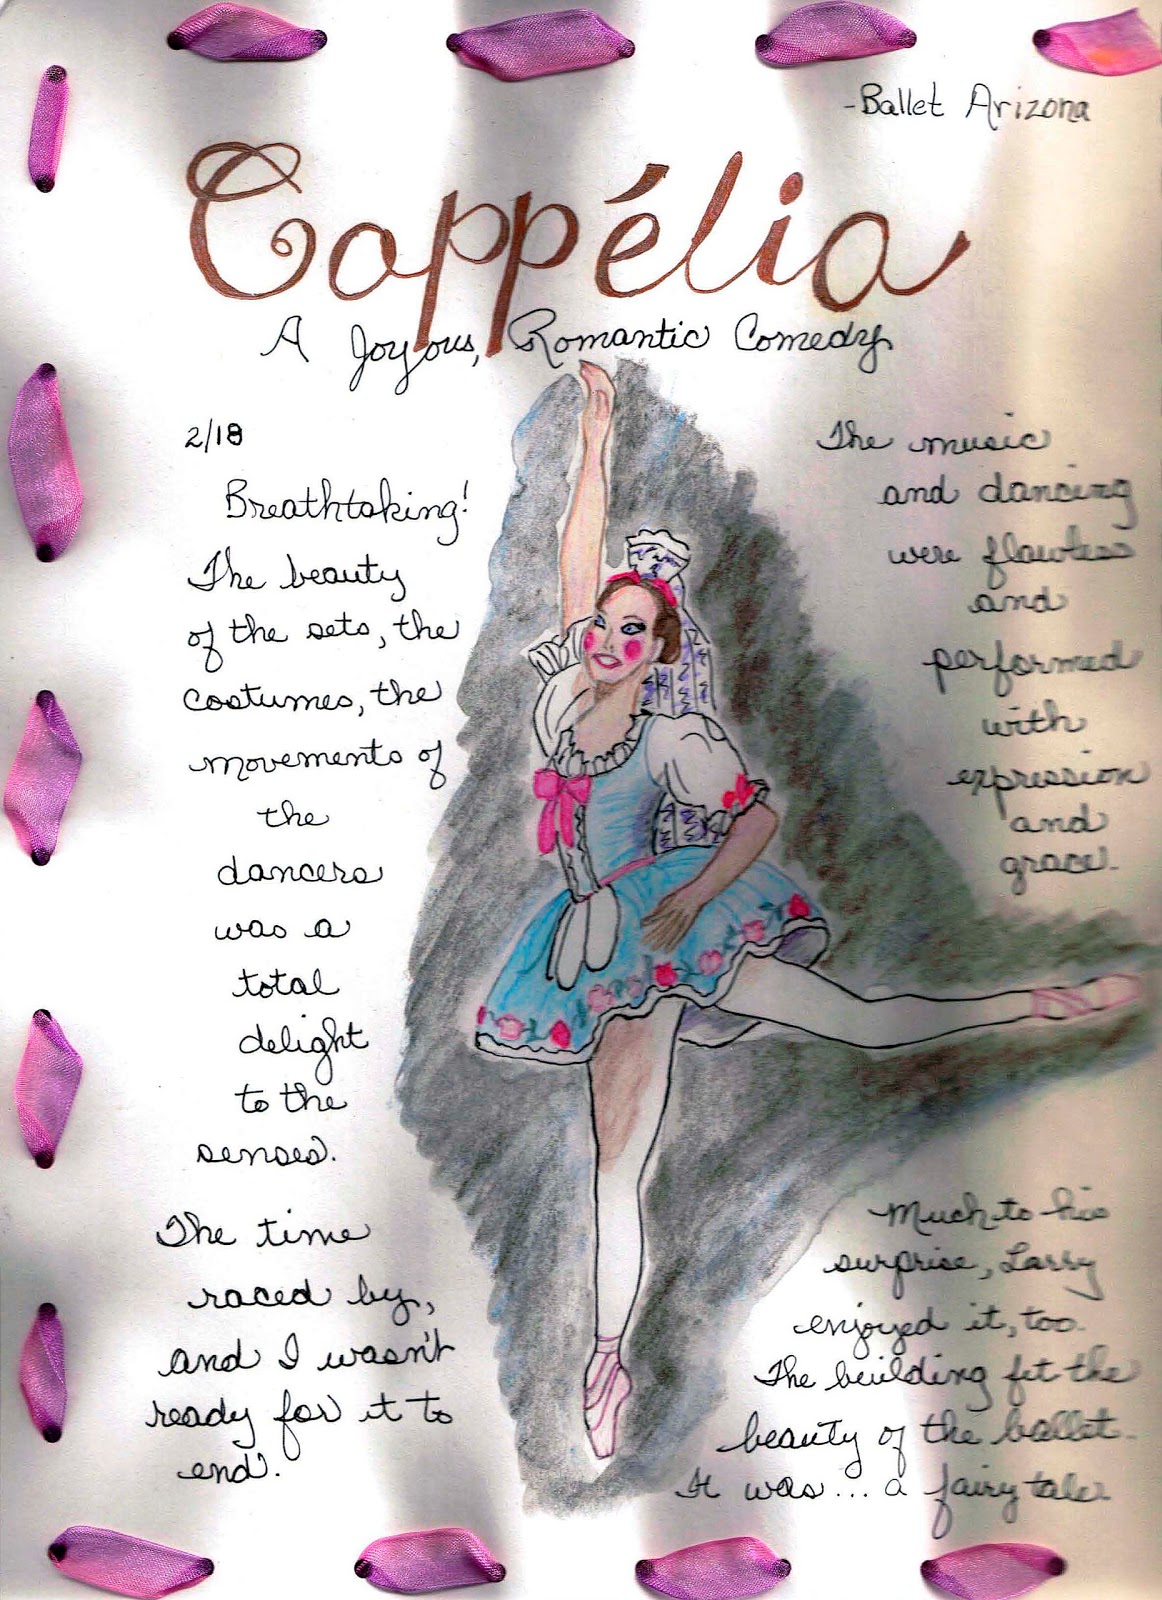 -Ballet Arizona
Coppélia
A Joyous, Romantic Comedy
2/18
Breathtaking!
The beauty
of the sets, the
costumes, the
movements of
the
dancers
was a
total
delight
to the
senses.
The time
raced by,
and I wasn't
ready for it to
end.
The music
and dancing
were flawless
and
performed
with
expression
and
grace.
Much to his
surprise, Larry
enjoyed it, too.
The building fit the
beauty of the ballet.
It was... a fairy tale.